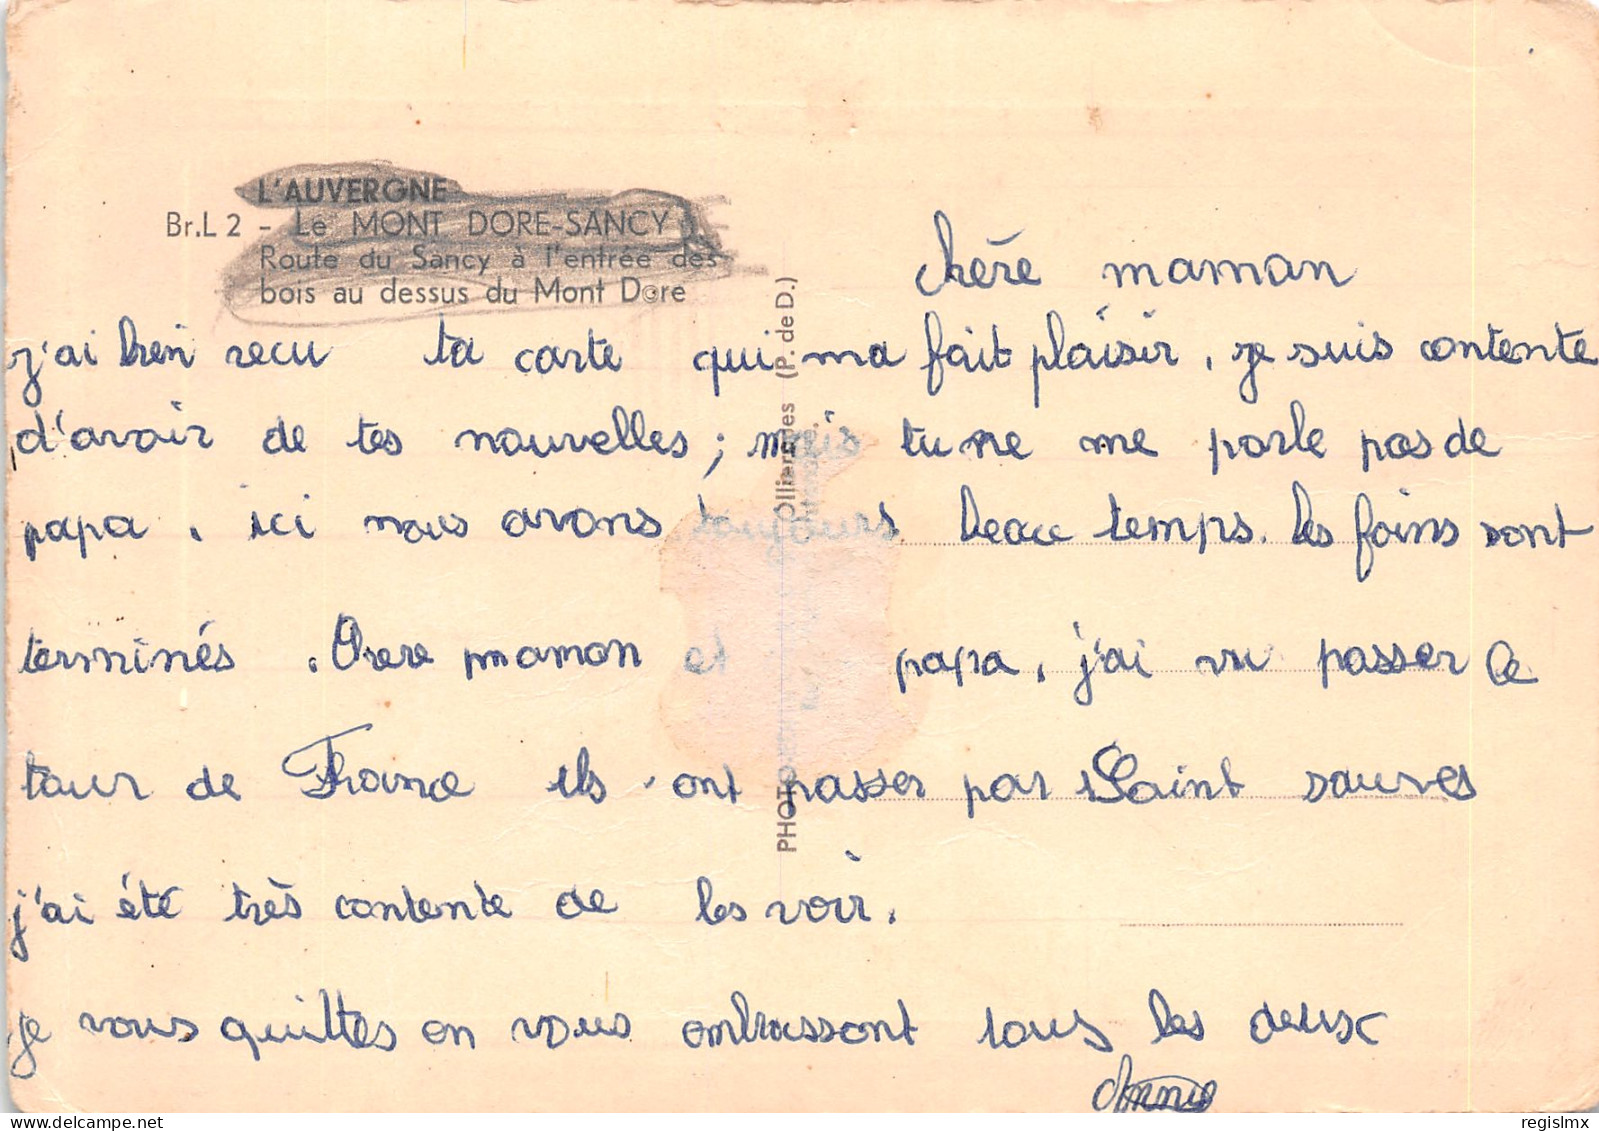 L'AUVERGNE
Br.L 2 - Le MONT DORE-SANCY
Route du Sancy à l'entrée des
bois au dessus du Mont Dore
chère maman
j'ai bien recu ta carte qui ma fait plaisir, je suis contente
d'avoir de tes nouvelles; mais tu ne me parle pas de
papa. ici nous avons toujours beau temps. les foins sont
terminés. Chere maman et papa, j'ai vu passer le
tour de France ils ont passer par Saint sauves
j'ai été très contente de les voir.
je vous quittes en vous embrassent tous les deux
Anny
PHOTO Ollierques (P. de D.)
regislmx